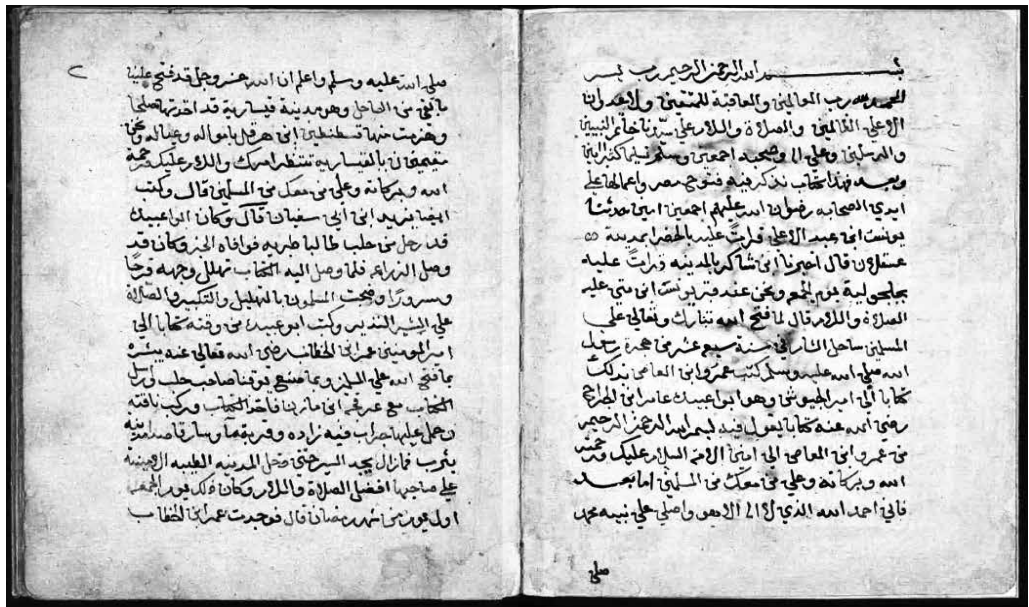 بسم الله الرحمن الرحيم رب يسر
الحمد لله رب العالمين والعاقبة للمتقين ولا عدوان
الا علي الظالمين والصلاة والسلام علي سيدنا خاتم النبيين
والمرسلين وعلي اله وصحبه اجمعين وسلم تسليما كثيرا
وبعد فهذا كتاب نذكر فيه فتوح مصر واعمالها علي
ايدي الصحابه رضوان الله عليهم اجمعين امين حدثنا
يونس ابن عبد الاعلي قرات عليه بالخضرا بمدينة
عسقلان قال اخبرنا ابن شاكر بالمدينه قرات عليه
يوم الجمعه ونحن عند قبر يونس ابن متي عليه
الصلاة والسلام قال لما فتح الله تبارك وتعالي علي
المسلمين ساحل الشام في سنة سبع عشر من هجرة رسول
الله صلي الله عليه وسلم كتب عمرو ابن العاص بذلك
كتابا الي امير الجيوش وهو ابو عبيدة عامر ابن الجراح
رضي الله عنه كتابا يقول فيه بسم الله الرحمن الرحيم
من عمرو ابن العاص الي امين الامه السلام عليك ورحمت
الله وبركاته وعلي من معك من المسلمين اما بعد
فاني احمد الله الذي لا اله الا هو واصلي علي نبيه محمد
صلي
٢
صلي الله عليه وسلم واعلم ان الله عز وجل قد فتح علينا
ما بقي من الساحل وهو مدينة قيسارية قد اخذتها صلحا
وهربت منها قسطنطين ابن هرقل بامواله وعياله ونحن
مقيمين بالقيساريه ننتظر امرك والسلام عليك ورحمة
الله وبركاته وعلي من معك من المسلمين قال وكتب
ايضا يزيد ابن ابي سفيان قال وكان ابو عبيدة
قد رحل من حلب طالبا طبريه فوافاه الخبر وكان قد
وصل الزراعه فلما وصل اليه الكتاب تهلل وجهه فرحا
وسرورا وضجت المسلمون بالتهليل والتكبير والصلاة
علي البشير النذير وكتب ابو عبيدة من وقته كتابا الي
امير المومنين عمر ابن الخطاب رضي الله تعالي عنه يبشره
بما فتح الله علي المسلمين وبما صنع يوقنا صاحب حلب وارسل
الكتاب مع عرفجه ابن مازن فاخذ الكتاب وركب ناقته
وحمل عليها جراب فيه زاده وقربة ماء وسار قاصدا مدينه
يثرب فمازال يجد السير حتي دخل المدينه الطيبه الامينه
علي صاحبها افضل الصلاة والسلام وكان ذلك يوم الجمعه
اول يوم من شهر رمضان قال فوجدت عمر ابن الخطاب